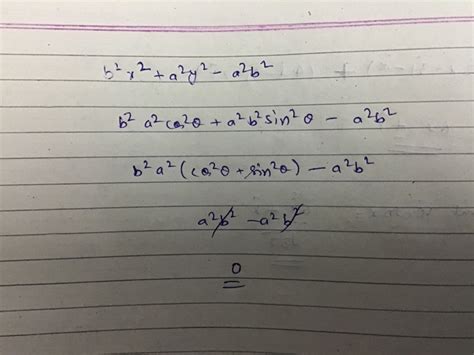 b²x² + a²y² - a²b²
b² a² cos²θ + a²b² sin²θ - a²b²
b² a² (cos²θ + sin²θ) - a²b²
a²b² - a²b²
0